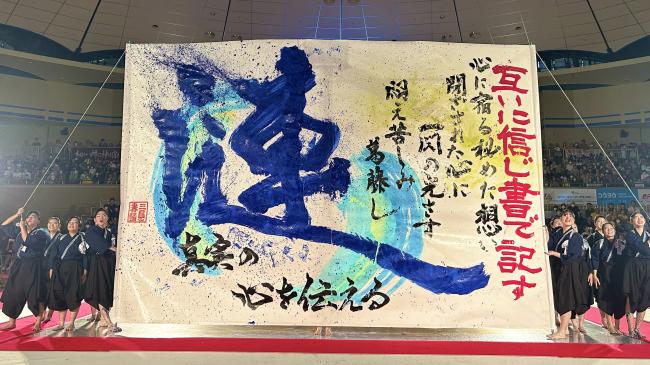 互いに信じ書で記す
心に宿る秘めた想い
閉ざされた心に
一閃の光さす
悶え苦しみ
葛藤し
真実の
心を伝える